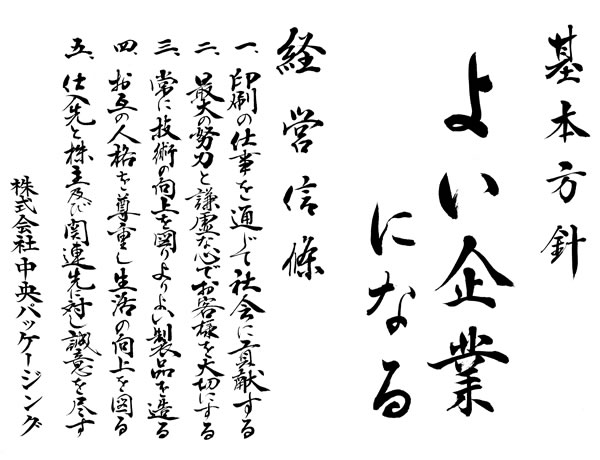 基本方針
よい企業
になる
経営信條
一、印刷の仕事を通じて社会に貢献する
二、最大の努力と謙虚な心でお客様を大切にする
三、常に技術の向上を図りよりよい製品を造る
四、お互の人格を尊重し生活の向上を図る
五、仕入先と株主及び関連先に対し誠意を尽す
株式会社中央パッケージング